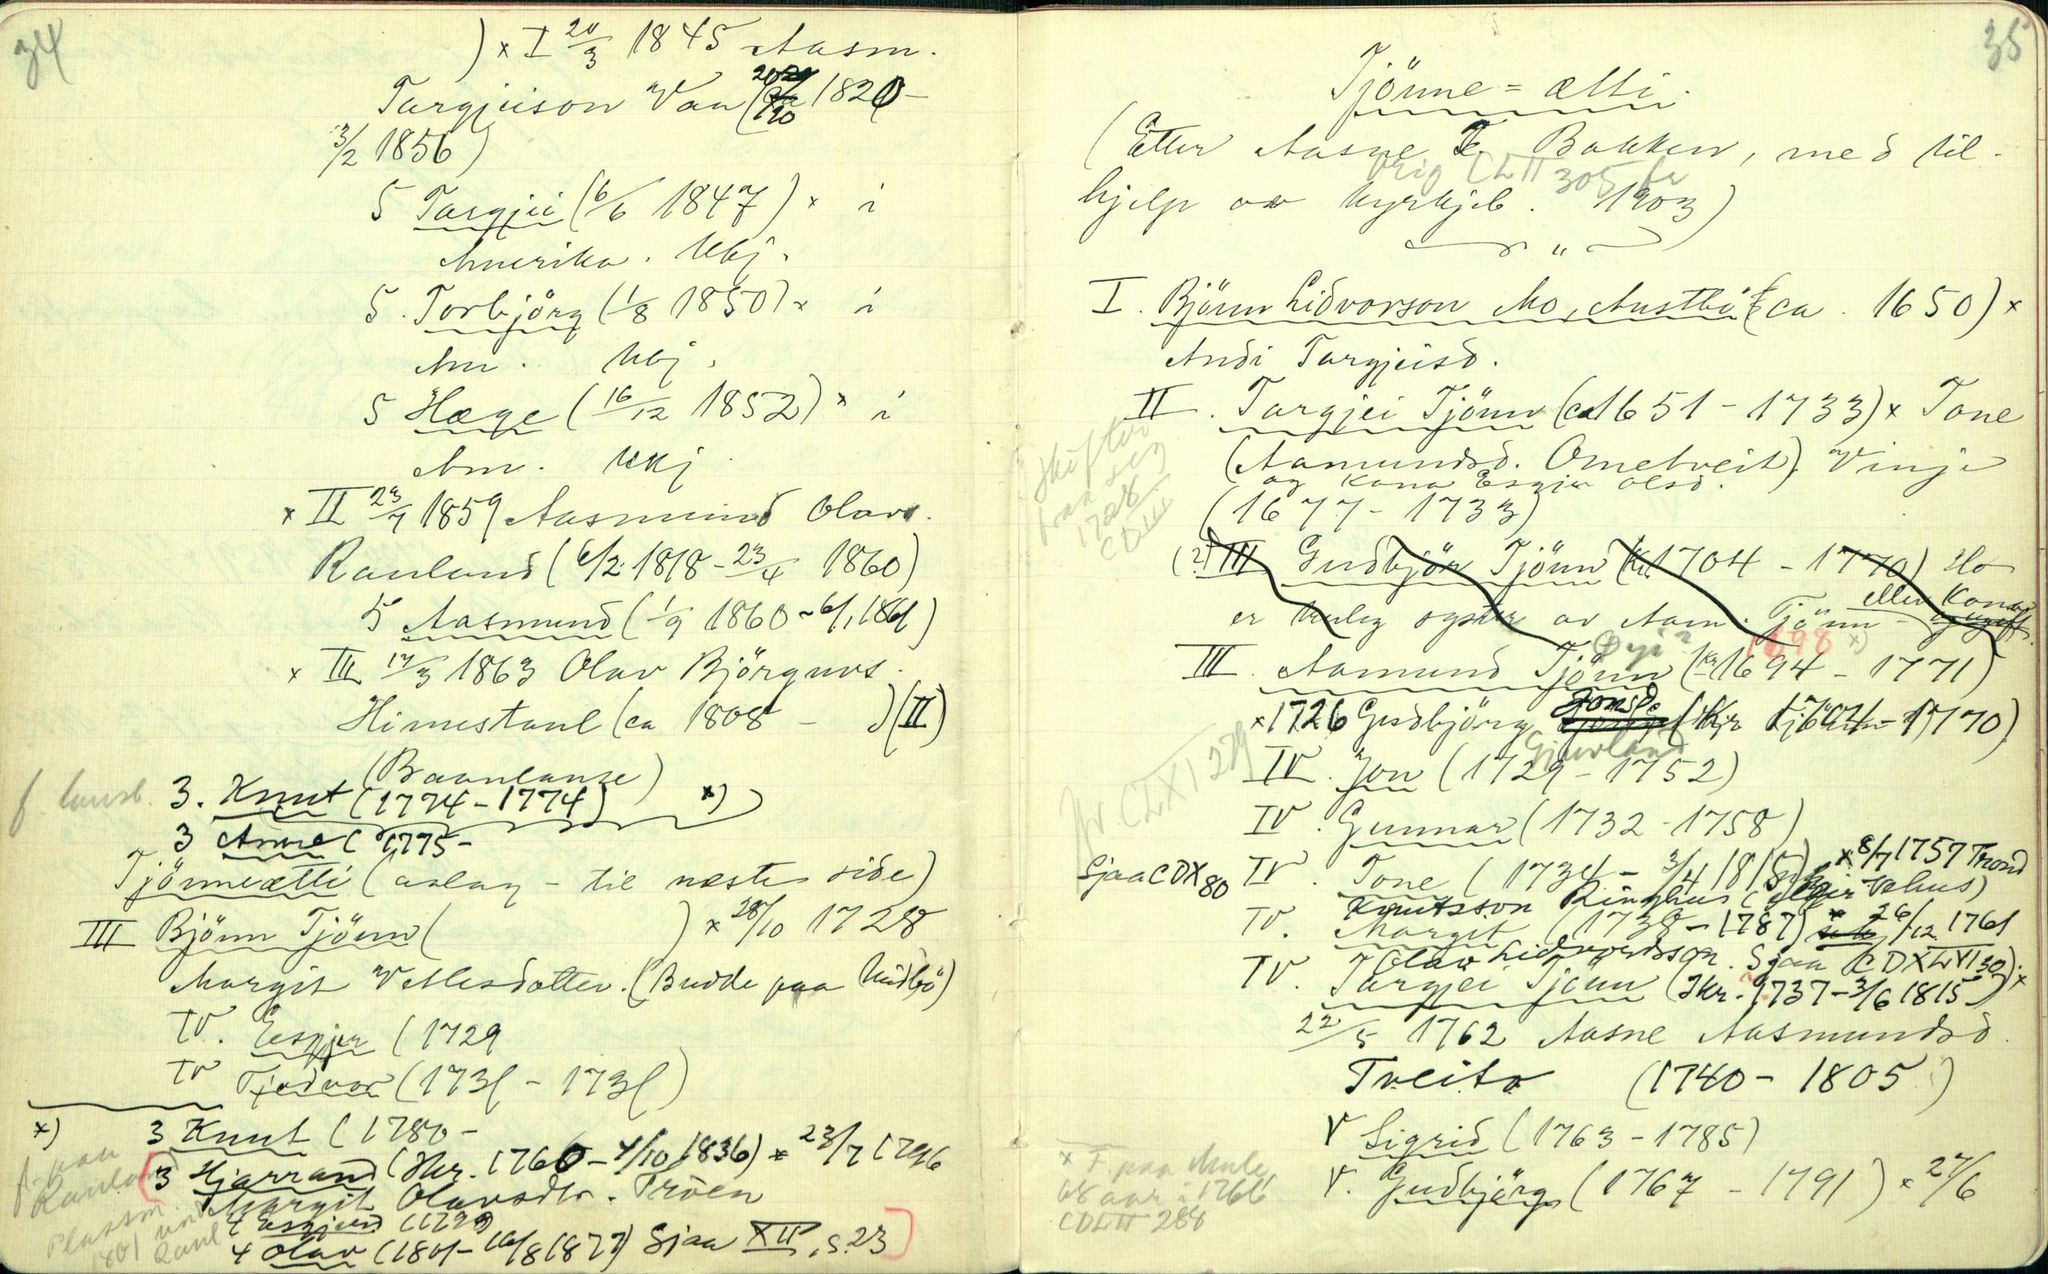 34
) × I 20/3 1845 Aasm.
Targjeison Vaa ( 1820 –
3/2 1856)
5 Targjei (6/6 1847) × i
Amerika. Ukj.
5. Torbjörg (1/8 1850) × i
Am. Ukj.
5 Hæge (16/12 1852) × i
Am. Ukj.
× II 23/7 1859 Aasmund Olavs.
Rauland (6/2 1818 – 23/4 1860)
5 Aasmund (1/9 1860 – 6/1 1861)
× III 17/3 1863 Olav Björguvs.
Himestaul (ca 1808 – ) (II)
(Baanlause)
f. 3. Knut (1774 – 1774) ×)
3 Anne ( 1775 –
Tjönneætti (aslag – til neste side)
III Björn Tjönn ( ) × 28/10 1728
Margit Vetlesdotter. (Budde paa Midbö)
IV. Eesgjer (1729
IV Tjodvor (1731 – 1731)
×) 3 Knut (1780 –
f. paa
Rauland
3 Hjarrand (Hr. 1760 – 4/10 1836) × 23/7 1796
Margit Olavsdtr. Tröen
Plassm. under
4 Esgjerd (1799
1801 Raul
4 Olav (1801 – 16/8 1877) Sjaa XII, s. 23
35
Tjönne = ætti.
(Etter Aasne T. Bakken, med til-
orig CLII 305 fr
hjelp av kyrkjeb. 1903)
„
I. Björn Lidvorson Mo, Austbö (f ca. 1650) ×
Andi Targjeisd.
II. Targjei Tjönn (ca 1651 – 1733) × Tone
(Aamundsd. Ometveit), Vinje
og kona Esgjer Olsd.
(1677 – 1733)
Skifter
fraa seg
1728
CDIII
(2) III Gudbjör Tjönn (Kr. 1704 – 1770) Ho
er truleg syster av Aam. Tjönn – eller kona
Öyi? 1698 ×)
III. Aamund Tjönn (Kr 1694 – 1771)
× 1726 Gudbjörg Jonsd. (Kr 1704 – 1770)
Gjuvland
Jfr. CLXI 279
IV. Jon (1729 – 1752)
IV. Gunnar (1732 – 1758)
Sjaa CDX 80 IV. Tone (1734 – 3/4 1818) × 8/7 1757 Trond
Knutsson Ringhus ( Velhus)
IV. Margit (1738 – 1787) × 26/12 1761
Olav Lidvordsson. Sjaa CDXLVI 30).
IV. Targjei Tjönn (Hr. 1737 – 3/6 1815) ×
22/5 1762 Aasne Aasmundsd.
Tveito (1740 – 1805)
V Sigrid (1763 – 1785)
V. Gudbjörg (1767 – 1791) × 27/6
× F. paa Mule
68 aar i 1766
CDLII 284